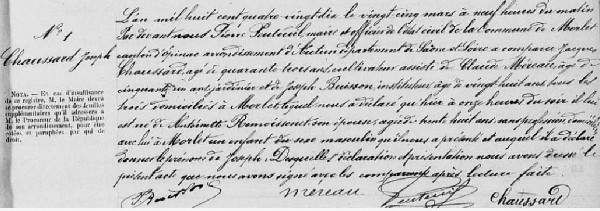 N° 1
Chaussard Joseph
NOTA. — En cas d'insuffisance
de ce registre, M. le Maire devra
se procurer directement des feuilles
supplémentaires qu'il adressera à
M. le Procureur de la République
de son arrondissement, pour être
cotées et paraphées par qui de
droit.
L'an mil huit cent quatre vingt dix le vingt cinq mars à neuf heures du matin
Par devant nous Pierre maire et officier de l'état civil de la Commune de Morlet
canton d'Epinac arrondissement d'Autun département de Saône et Loire a comparu Jacques
Chaussard, âgé de quarante trois ans, cultivateur assisté de Claude Méreau, âgé de
cinquante un ans, jardinier et de Joseph Buisson, instituteur âgé de vingt huit ans tous les
trois domiciliés à Morlet, lequel nous a déclaré que hier à onze heures du soir il lui
est né de Antoinette son épouse, âgée de trente huit ans, sans profession, domiciliée
avec lui à Morlet un enfant du sexe masculin qu'il nous a présenté et auquel il a déclaré
donner le prénom de Joseph. Desquelles déclaration et présentation nous avons dressé le
présent acte que nous avons signé avec les comparants après lecture faite.
mereau Chaussard